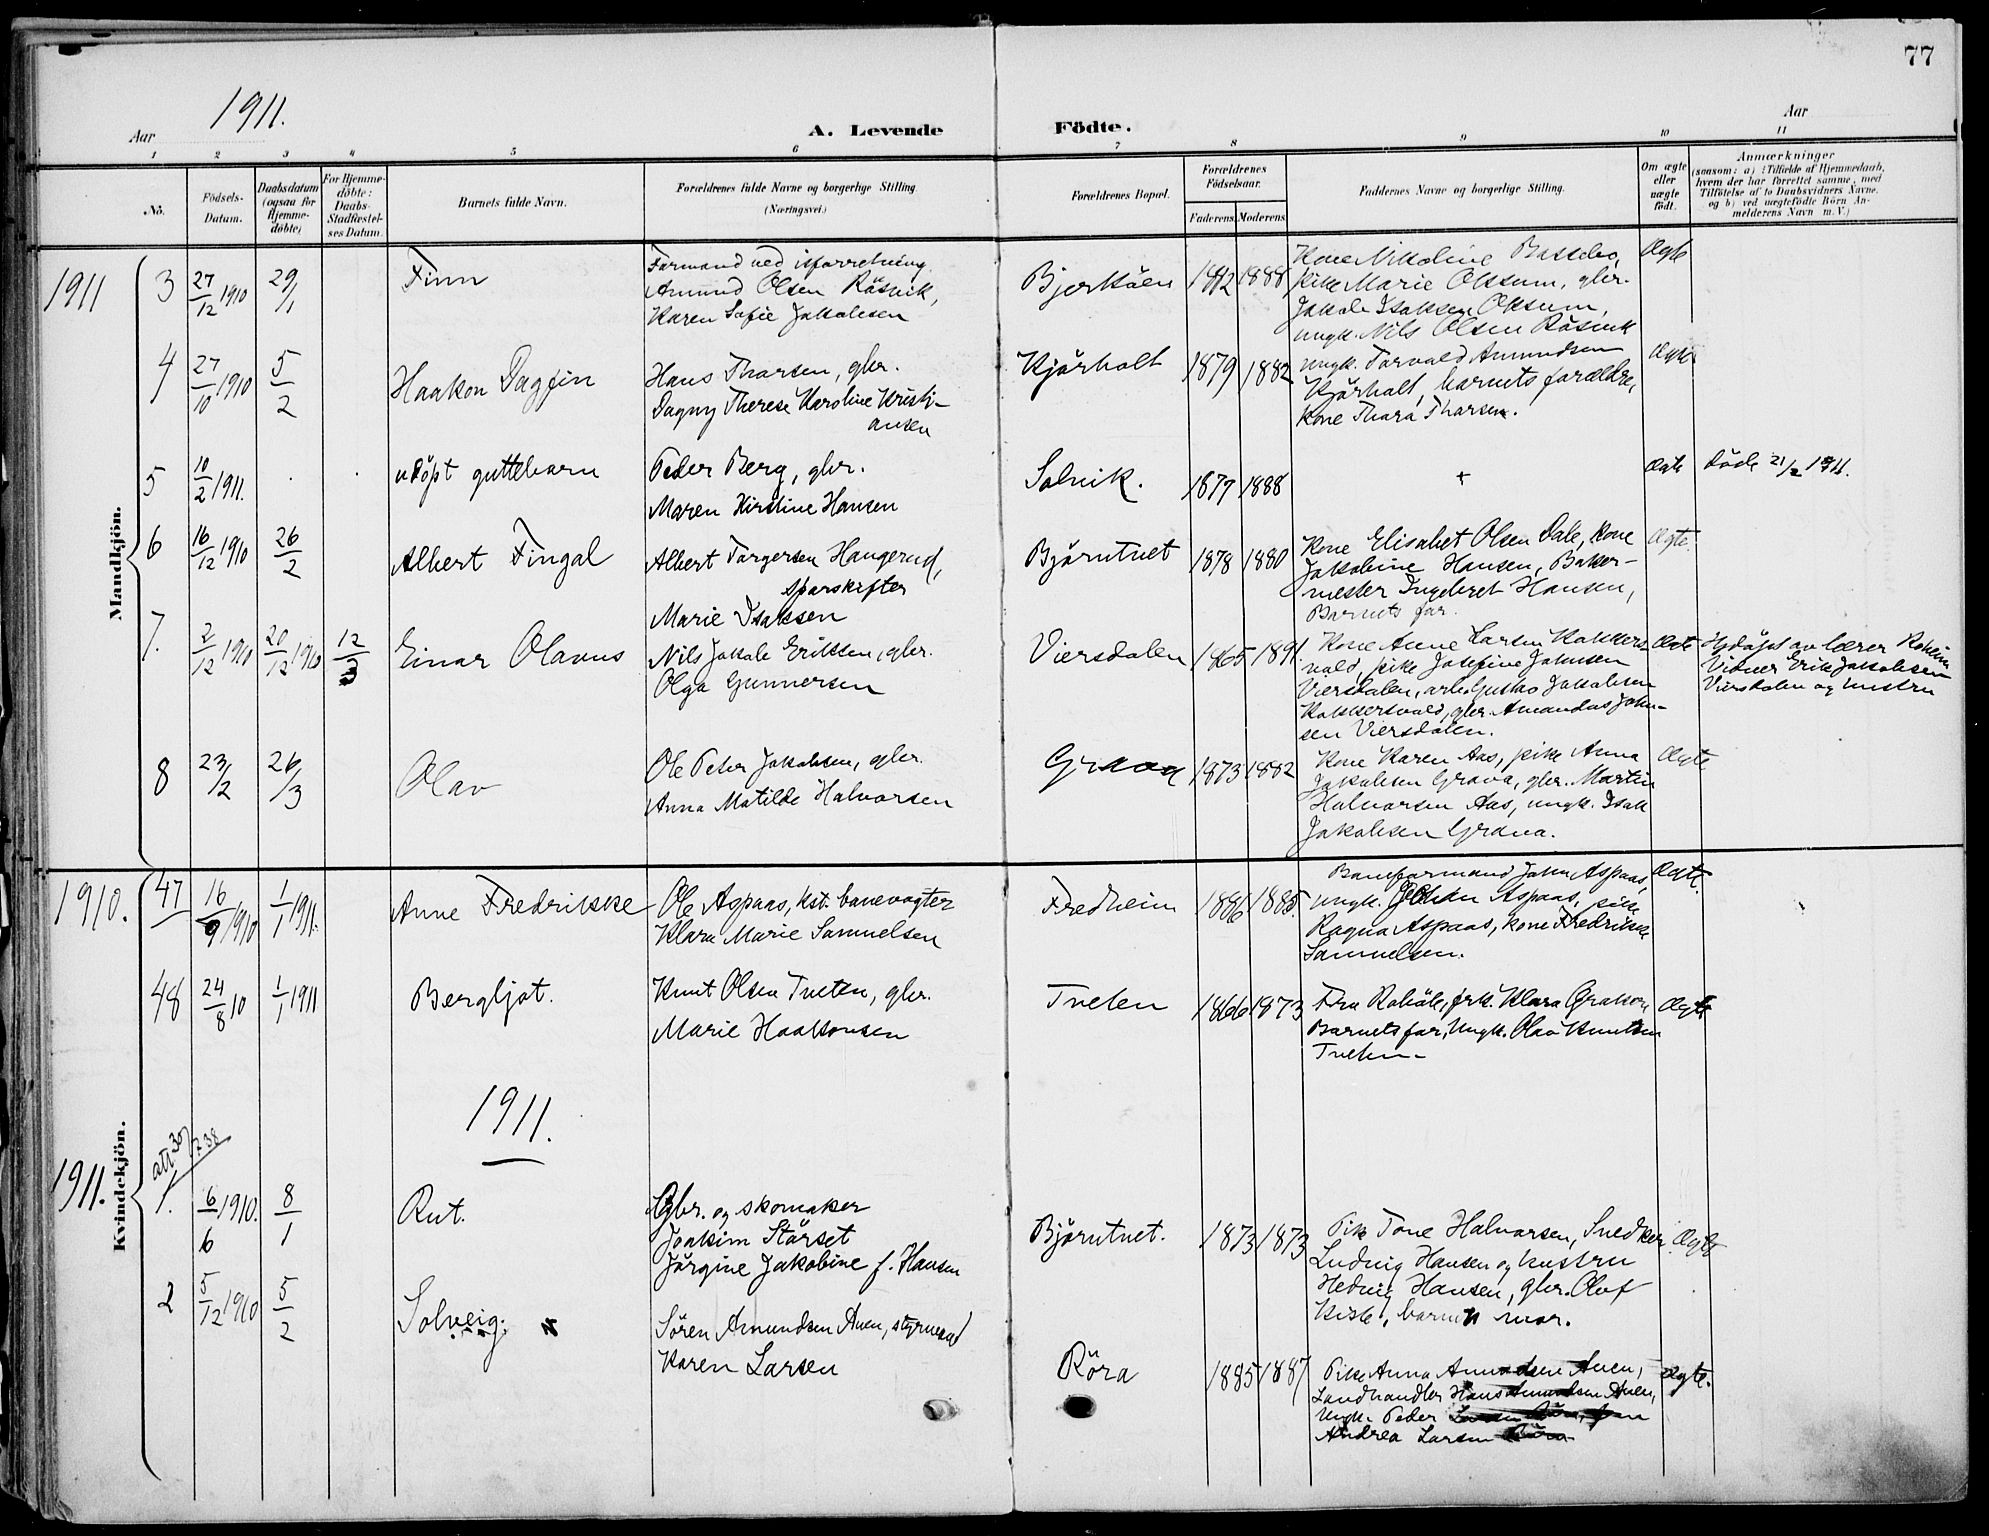 77
1911.
Aar
A. Levende
Födte.
Aar
1 2 3 4 5 6 7 8 9 10 11
No.
Födsels-
Datum.
Daabsdatum
(ogsaa for
Hjemme-
döbte)
For Hjemme-
döbte:
Daabs-
Stadfæstel-
ses Datum.
Barnets fulde Navn.
Forældrenes fulde Navne og borgerlige Stilling
(Næringsvei.)
Forældrenes Bopæl.
Forældrenes
Födselsaar.
Faderens Moderens
Faddernes Navne og borgelige Stilling.
Om ægte
eller
uægte
födt.
Anmærkninger
(saasom: a) i Tilfælde af Hjemmedaab,
hvem der har forrettet samme, med
Tilföielse af to Daabsvidners Navne.
og b) ved uægtefödte Börn An-
melderens Navn m. V.)
Mandkjön.
1911
3
27/12 1910
29/1
Finn
Formand ved isforretning
Amund Olsen Råsvik,
Karen Sofie Jakobsen
1888
Kone Nikoline
pike Marie Oksum, gbr.
Jakob Isaksen Oksum,
ungk. Nils Olsen Råsvik
Ægte
4
27/10 1910
5/2
Haakon Dagfin
Hans Thorsen, gbr.
Dagny Therese Karoline Kristi-
ansen
Kjörholt
1879 1882
ungk. Torvald Amundsen
Kjörholt, barnets forældre,
Kone Thora Thorsen.
Ægte
5
10/2 1911.
udöpt guttebarn
Peder Berg, gbr.
Maren Kirstine Hansen
Solvik.
1877 1888
+
Ægte
död 21/2 1911.
6
16/12 1910
26/2
Albert Fingal
Albert Torgersen Haugerud,
sporskifter
Marie Isaksen
Björntvet
1878 1880
Kone Elisabet Olsen Dale, Kone
Jakobine Hansen, Baker-
mester Ingebret Hansen,
Barnets far.
Ægte.
7.
2/12 1910
20/12 1910
12/3
Einar Olavus
Nils Jakob Eriksen, gbr.
Olga Gunnersen
Viersdalen
1865 1891.
Kone Anne Larsen Kokkers-
vold, pike Josefine Johnsen
Viersdalen, arb. Gustav Jakobsen
Kokkersvold, gbr. Amandus John-
sen Viersdalen.
Ægte
Hjdöpt av lærer
Vidner Erik Jakobsen
Viersdalen og hustru
8
23/2
26/3
Olav
Ole Peter Jakobsen, gbr.
Anna Matilde Halvorsen
Grava
1873 1882
Kone Karen Aas, pike Anna
Jakobsen Grava, gbr. Martin
Halvorsen Aas, ungk. Isak
Jakobsen Grava.
Ægte
Kvindekjön.
1910.
47
16/9 1910
1/1 1911.
Anne Fredrikke
Ole Aspaas, kst. banevogter
Klara Marie Samuelsen
Fredheim
1886 1885.
Baneformand John Aspaas,
ungk. Johan Aspaas, pike
Ragna Aspaas, kone Fredrikke
Samuelsen.
Ægte.
48
24/8 10
1/1 1911
Bergljot.
Knut Olsen Tveten, gbr.
Marie Haakonsen
Tveten
1866 1873
Fru frk. Klara
Barnets far, Ungk. Olav Knutsen
Tveten
Ægte
1911.
att 30/7 38
1911.
1.
6/6 1910.
8/1
Rut.
Gbr. og skomaker
Joakim Störset
Jörgine Jakobine f. Hansen
Björntvet.
1873 1873
Pike Tone Halvorsen, Snedker
Ludvig Hansen og hustru
Hedvig Hansen, gbr. Olaf
barnets mor.
Ægte
2
5/12 1910
5/2
Solveig.
Sören Amundsen Auen, styrmand
Karen Larsen
Röra
1885 1887
Pike Anna Amundsen Auen,
Landhandler Hans Amundsen Auen,
Ungk. Peder Larsen
Andrea Larsen Röra
Ægte.